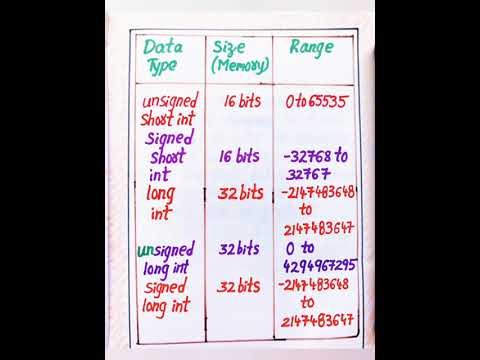 Data Type
Size (Memory)
Range
unsigned short int
16 bits
0 to 65535
Signed short int
16 bits
-32768 to 32767
long int
32 bits
-2147483648 to 2147483647
unsigned long int
32 bits
0 to 4294967295
signed long int
32 bits
-2147483648 to 2147483647